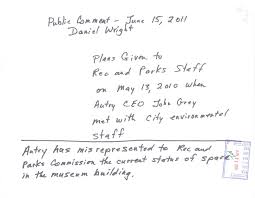 Public Comment - June 15, 2011
Daniel Wright
Plans Given to
Rec and Parks Staff
on May 13, 2010 when
Autry CEO John Gray
met with City environmental
staff
Autry has misrepresented to Rec and
Parks Commission the current status of space
in the museum building.